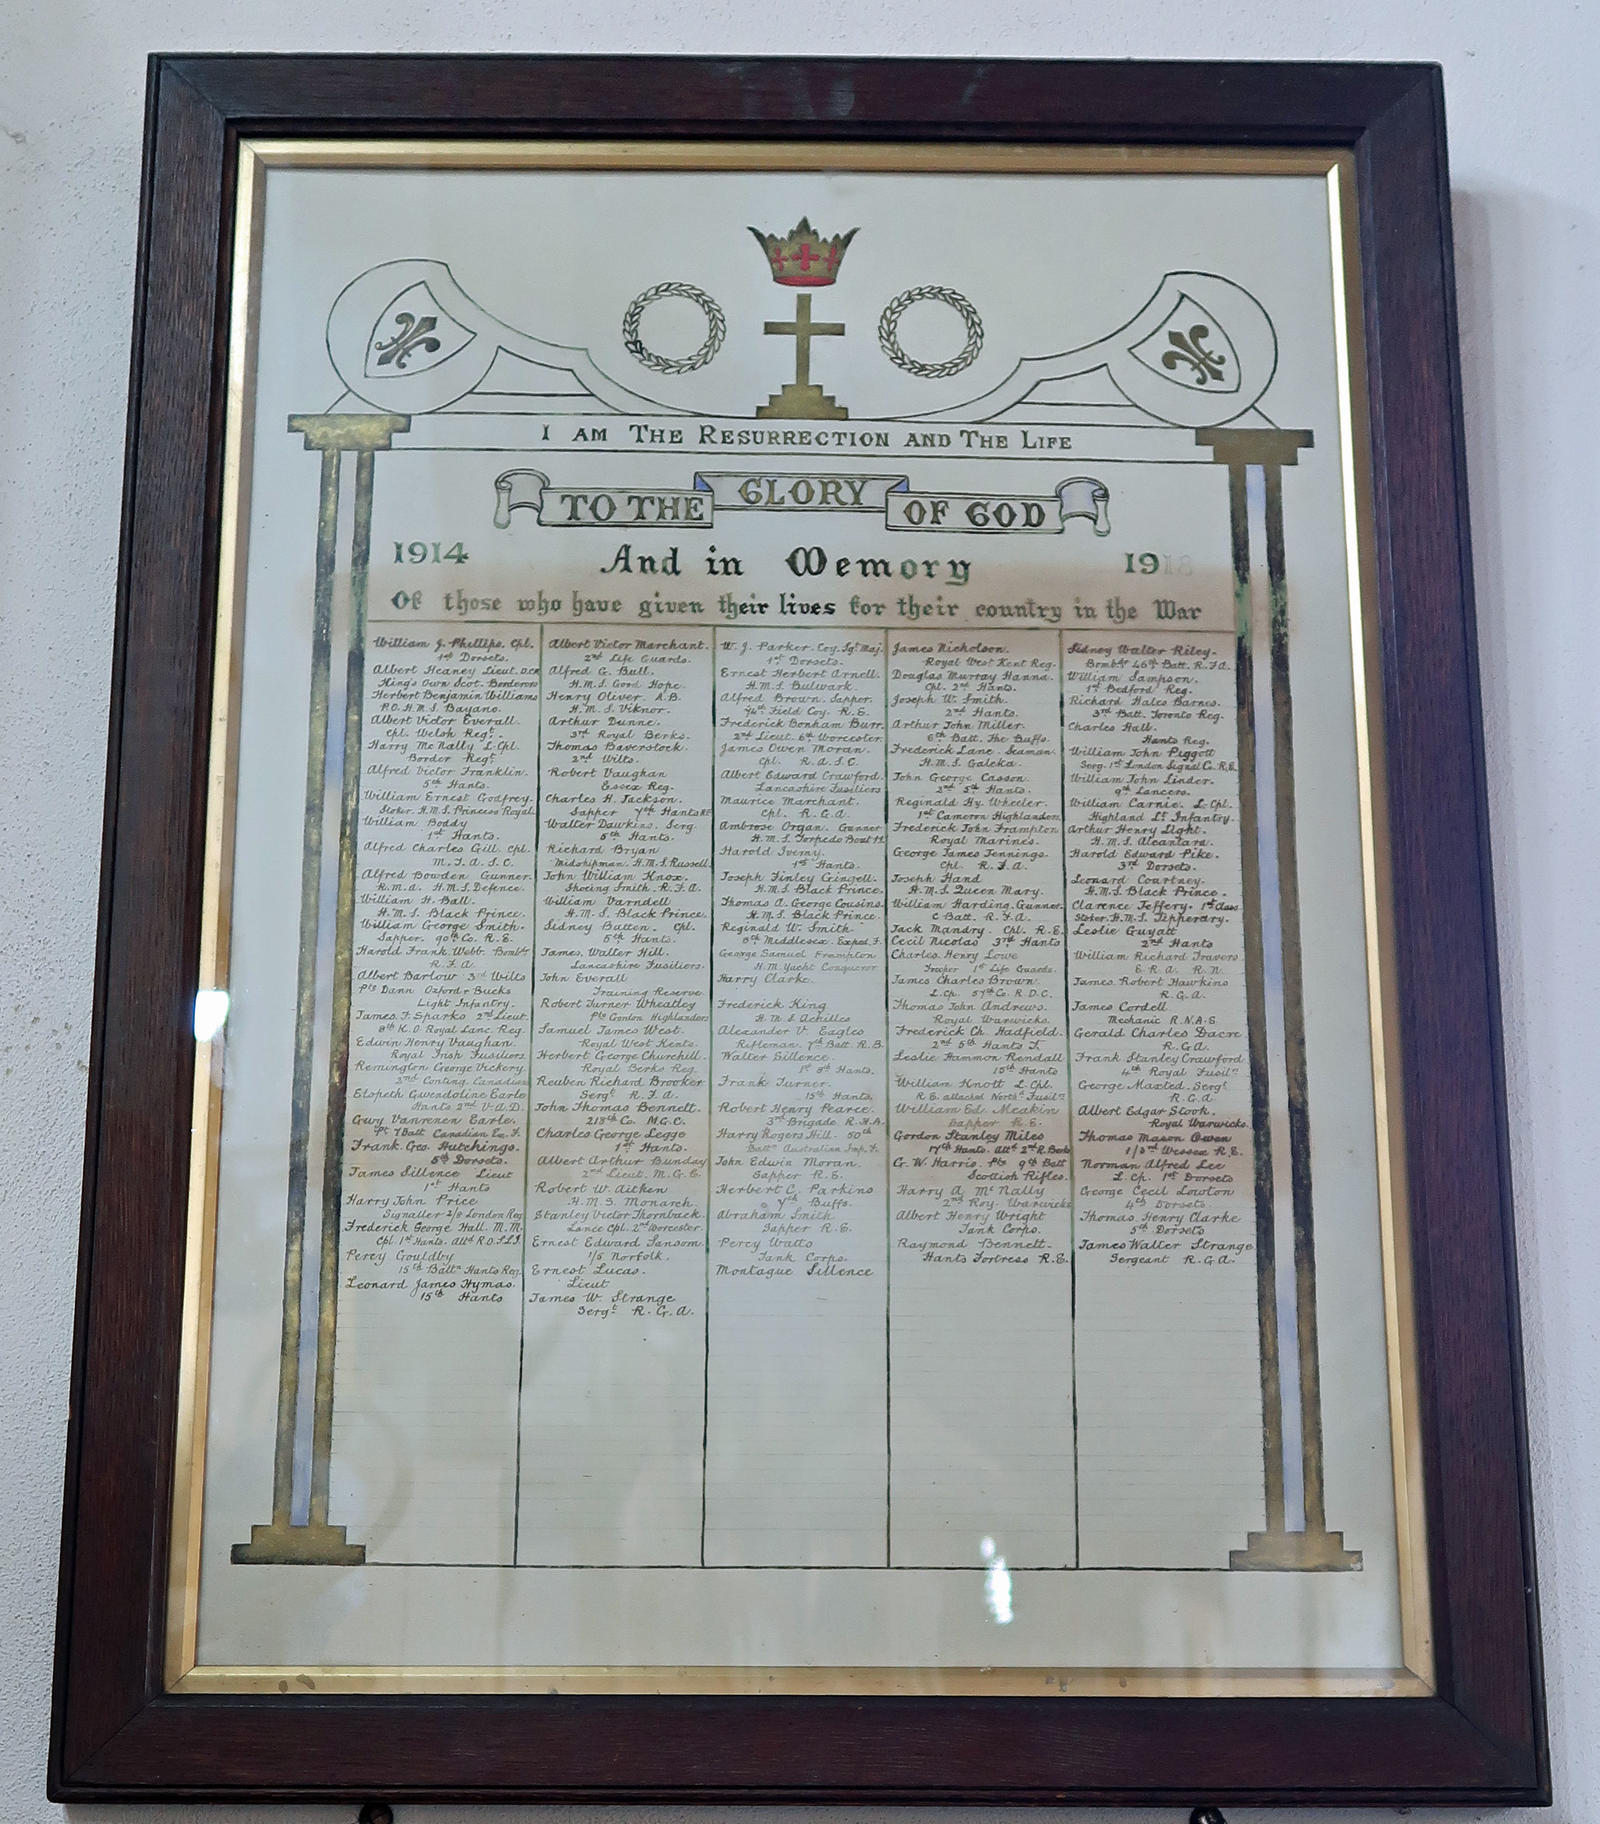 I AM THE RESURRECTION AND THE LIFE
TO THE GLORY OF GOD
1914 And in Memory 1918
Of those who have given their lives for their country in the War
William J. Phillips. Cpl.
1st Dorsets.
Albert Heaney Lieut. DCM
King's Own Scot. Borderers
Herbert Benjamin Williams
P.O. H.M.S. Bayano.
Albert Victor Everall.
Cpl. Welsh Regt.
Harry McNally L. Cpl.
Border Regt
Alfred Victor Franklin.
5th Hants.
William Ernest Godfrey.
Stoker. H.M.S. Princess Royal.
William Boddy
1st Hants.
Alfred Charles Gill. Cpl.
M.T.A.S.C.
Alfred Bowden Gunner.
R.M.A. H.M.S. Defence.
William H. Ball.
H.M.S. Black Prince.
William George Smith.
Sapper. 90th Co. R.E.
Harold Frank Webb. Bombr
R.F.A.
Albert Barlow 3rd Wilts
Pte Dann Oxford & Bucks
Light Infantry.
James F. Sparks 2nd Lieut.
8th K.O. Royal Lanc. Reg.
Edwin Henry Vaughan.
Royal Irish Fusiliers.
Remington George Vickery.
2nd Conting. Canadians
Elspeth Gwendoline Earle
Hants 2nd V.A.D.
Guy Vanrenen Earle.
Pt 7 Batt Canadian Ex. F.
Frank. Geo. Hutchings.
5th Dorsets.
James Sillence Lieut
1st Hants
Harry John Price
Signaller 2/8 London Reg
Frederick George Hall. M.M.
Cpl. 1st Hants. Attd R.O.F.L.I.
Percy Gouldby
15th Battn Hants Reg.
Leonard James Hymas.
15th Hants
Albert Victor Marchant.
2nd Life Guards.
Alfred G. Bull.
H.M.S. Good Hope.
Henry Oliver A.B.
H.M.S. Viknor.
Arthur Dunne.
3rd Royal Berks.
Thomas Baverstock.
2nd Wilts.
Robert Vaughan
Essex Reg.
Charles H. Jackson.
Sapper 7th Hants RE
Walter Dawkins. Serg.
5th Hants.
Richard Bryan
Midshipman. H.M.S. Russell.
John William Knox.
Shoeing Smith. R.F.A.
William Varndell
H.M.S. Black Prince.
Sidney Batten. Cpl.
5th Hants.
James. Walter Hill.
Lancashire Fusiliers.
John Everall
Training Reserve
Robert Turner Wheatley
Pte Gordon Highlanders
Samuel James West.
Royal West Kents.
Herbert George Churchill.
Royal Berks Reg.
Reuben Richard Brooker
Sergt R.F.A.
John Thomas Bennett.
218th Co. M.G.C.
Charles George Legge
1st Hants.
Albert Arthur Bunday
2nd Lieut. M.G.C.
Robert W. Aitken
H.M.S. Monarch.
Stanley Victor Thornback.
Lance Cpl. 2nd Worcester.
Ernest Edward Sansom.
1/5 Norfolk.
Ernest Lucas.
Lieut
James W. Strange
Sergt R.G.A.
W. J. Parker. Coy. Sgt Maj.
1st Dorsets.
Ernest Herbert Arnell.
H.M.S. Bulwark.
Alfred Brown. Sapper.
Field Coy. R.E.
Frederick Bonham Burr.
2nd Lieut. 6th Worcester
James Owen Moran.
Cpl. R.A.S.C.
Albert Edward Crawford.
Lancashire Fusiliers
Maurice Marchant.
Cpl. R.G.A.
Ambrose Organ. Gunner
H.M.S. Torpedo Boat 11
Harold Iverny.
1st Hants.
Joseph Finley Gingell.
H.M.S. Black Prince.
Thomas A. George Cousins.
H.M.S. Black Prince.
Reginald W. Smith
8th Middlesex. Exped. F.
George Samuel Frampton
H.M. Yacht Conqueror
Harry Clarke.
Frederick King
H.M.S Achilles
Alexander V. Eagles
Rifleman. 7th Batt. R.B.
Walter Sillence.
1st 8th Hants.
Frank Turner.
15th Hants.
Robert Henry Pearce.
3rd Brigade R.H.A.
Harry Rogers Hill. 50th
Batt. Australian Imp. F.
John Edwin Moran.
Sapper R.E.
Herbert C. Parkins
7th Buffs.
Abraham Smith
Sapper R.E.
Percy Watts
Tank Corps.
Montague Sillence
James Nicholson.
Royal West Kent Reg.
Douglas Murray Hanna.
Cpl. 2nd Hants.
Joseph W. Smith.
2nd Hants.
Arthur John Miller.
6th Batt. The Buffs.
Frederick Lane. Seaman.
H.M.S. Galeka.
John George Casson.
2nd 5th Hants.
Reginald Hy. Wheeler.
1st Cameron Highlanders.
Frederick John Frampton
Royal Marines.
George James Jennings.
Cpl. R.F.A.
Joseph Hand
H.M.S. Queen Mary.
William Harding. Gunner
C Batt. R.F.A.
Jack Mandry. Cpl. R.E.
Cecil Nicolas 3rd Hants
Charles Henry Lowe
Trooper 1st Life Guards.
James Charles Brown.
L.Cp. 57th Co. R D.C.
Thomas John Andrews.
Royal Warwicks.
Frederick Ch. Hadfield.
2nd 5th Hants T.
Leslie Hammon Rendall
15th Hants
William Knott L. Cpl.
R.E. attached North. Fusilrs
William Ed. Meakin
Sapper R.E.
Gordon Stanley Miles
17th Hants. Attd 2nd R. Berks
G. W. Harris. Pte 9th Batt
Scottish Rifles.
Harry A McNally
2nd Roy. Warwicks
Albert Henry Wright
Tank Corps.
Raymond Bennett.
Hants Fortress R.E.
Sidney Walter Riley.
Bombdr 46th Batt. R.F.A.
William Sampson.
1st Bedford Reg.
Richard Hales Barnes.
3rd Batt. Toronto Reg.
Charles Hall.
Hants Reg.
William John Piggott
Serg. 1st London Signal Co. R.E.
William John Linder.
9th Lancers.
William Carnie. L. Cpl.
Highland Lt Infantry.
Arthur Henry Light.
H.M.S. Alcantara.
Harold Edward Pike.
3rd Dorsets.
Leonard Courtney.
H.M.S. Black Prince.
Clarence Jeffery. 1st Class
Stoker. H.M.S. Tipperary.
Leslie Guyatt
2nd Hants
William Richard Travers
E.R.A. R.N.
James. Robert Hawkins
R.G.A.
James Cordell
Mechanic R.N.A.S.
Gerald Charles Dacre
R.G.A.
Frank Stanley Crawford
4th Royal Fusilrs
George Maxted. Sergt
R.G.A.
Albert Edgar Stook.
Royal Warwicks.
Thomas Mason Owen
1/3rd Wessex R.E.
Norman Alfred Lee
L. Cp. 1st Dorsets
George Cecil Lowton
4th Dorsets
Thomas. Henry Clarke
5th Dorsets
James Walter Strange
Sergeant R.G.A.